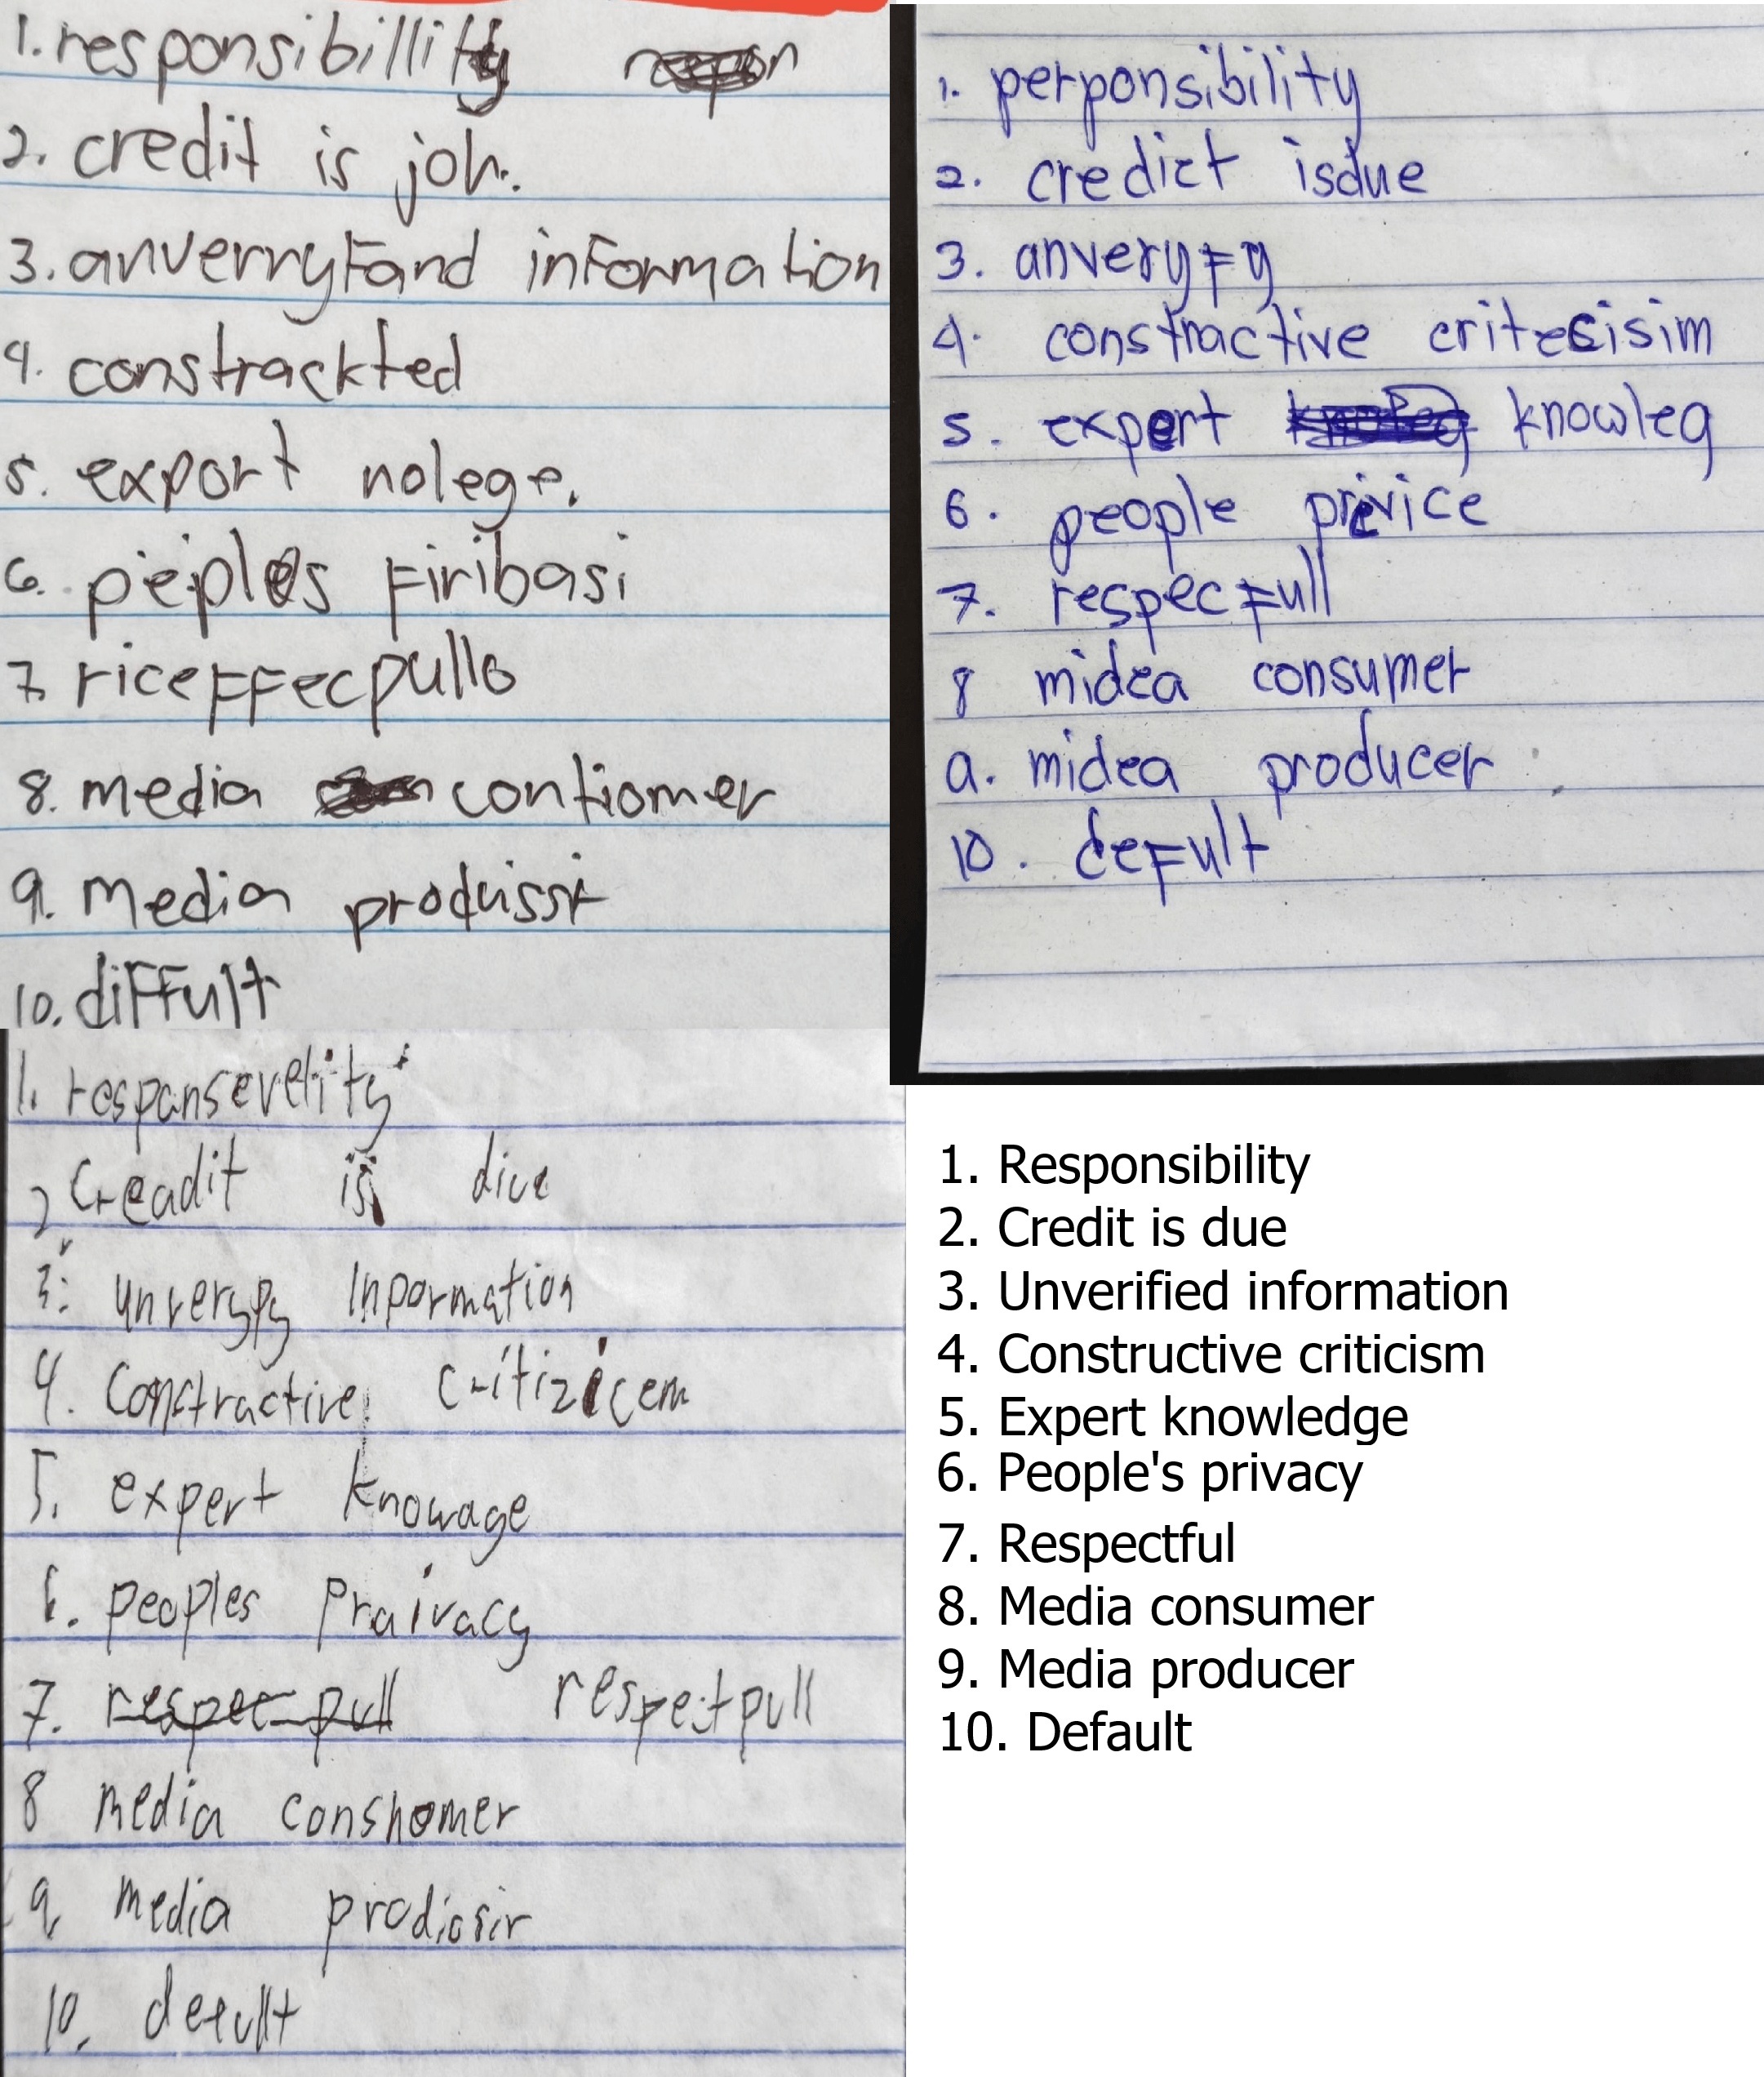 1. responsibillity
2. credit is joh.
3. anverryFand information
4. constrackted
5. export nolege.
6. peiples Firibasi
7. riceFFecpullo
8. media contiomer
9. media produissr
10. diffult
1. perponsibility
2. credict isdue
3. anveryFy
4. constractive critecisim
5. expert knowleg
6. people privice
7. respecFull
8 midea consumer
a. midea producer
10. deFult
1. responsevelity
2, creadit is diue
3: unverypy Inpormation
4. Constractive critizicem
5. expert Knowage
6. peoples Praivacy
7. respec pull respectpull
8 media conshomer
9, media prodiosir
10. defullt
1. Responsibility
2. Credit is due
3. Unverified information
4. Constructive criticism
5. Expert knowledge
6. People's privacy
7. Respectful
8. Media consumer
9. Media producer
10. Default